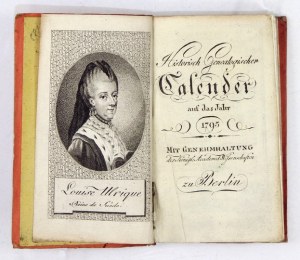 Louise Ulrique
Reine de Suède
Historisch Genealogischer
Calender
auf das Jahr
1795
MIT GENEHMHALTUNG
zu Berlin